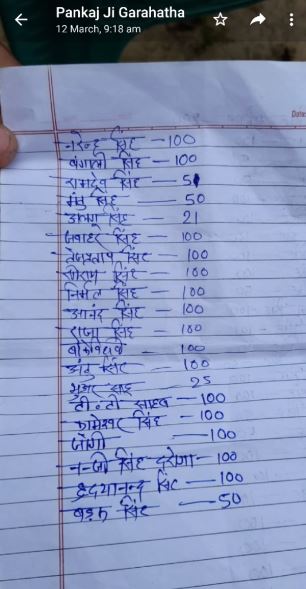 Pankaj Ji Garahatha
12 March, 9:18 am
Date
नरेन्द्र सिंह — 100
बंगाली सिंह — 100
रामदेव सिंह — 51
मंटु सिंह — 50
सिंह — 21
जवाहर सिंह — 100
तेजप्रताप सिंह — 100
श्रीराम सिंह — 100
निर्मल सिंह — 100
आनंद सिंह — 100
राजा सिंह — 100
— 100
सिंह — 100
साह — 25
टी.टी साहब — 100
कामेश्वर सिंह — 100
जोगी — 100
सिंह दरोगा — 100
हृदयानन्द सिंह — 100
सिंह — 50